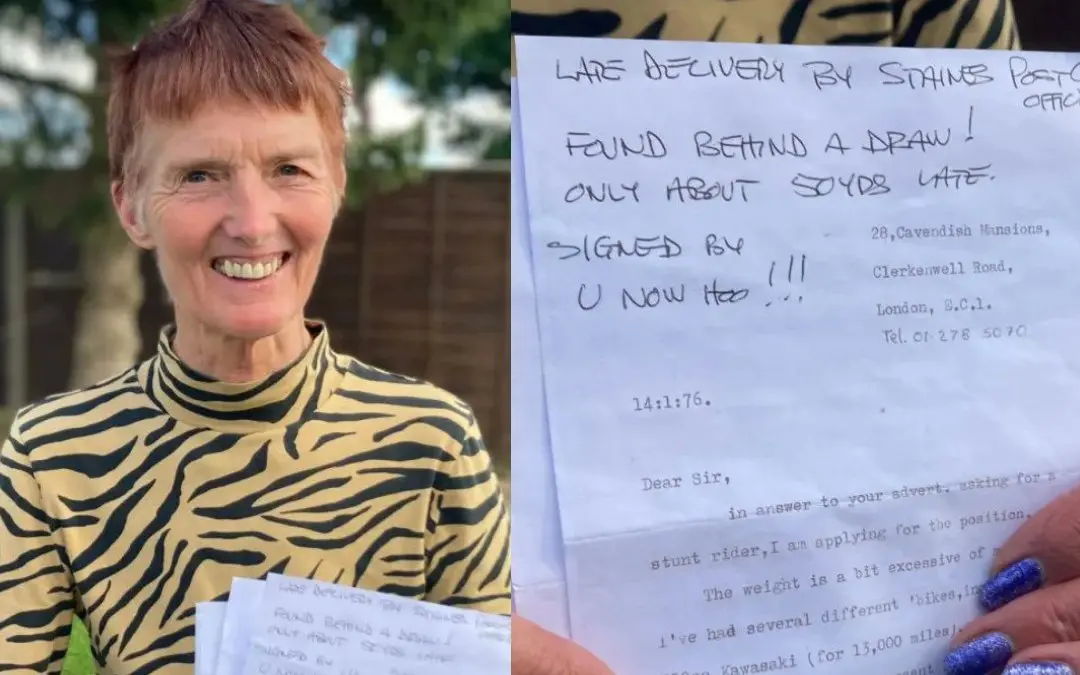 LATE DELIVERY BY STAINES POST
OFFIC
FOUND BEHIND A DRAW!
ONLY ABOUT 50YDS LATE.
SIGNED BY
U NOW HOO !!!
28,Cavendish Mansions,
Clerkenwell Road,
London, E.C.1.
Tel. 01 278 5070
14:1:76.
Dear Sir,
in answer to your advert. asking for a
stunt rider,I am applying for the position.
The weight is a bit excessive of
I've had several different 'bikes,in
Kawasaki (for 13,000 miles),
LATE DELIVERY BY STAINES
FOUND BEHIND A DRAW!
ONLY ABOUT 50YDS LATE
SIGNED BY
U NOW